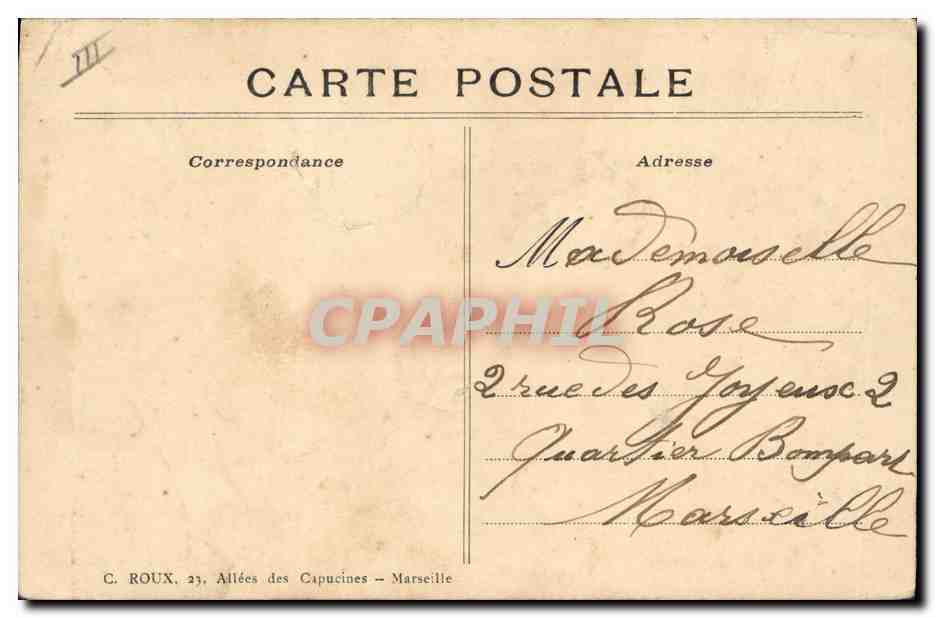 III
CARTE POSTALE
Correspondance
Adresse
Mademoiselle
Rose
2 rue des Joyeux 2
Quartier Bompart
Marseille
CPAPHIL
C. ROUX, 23, Allées des Capucines – Marseille